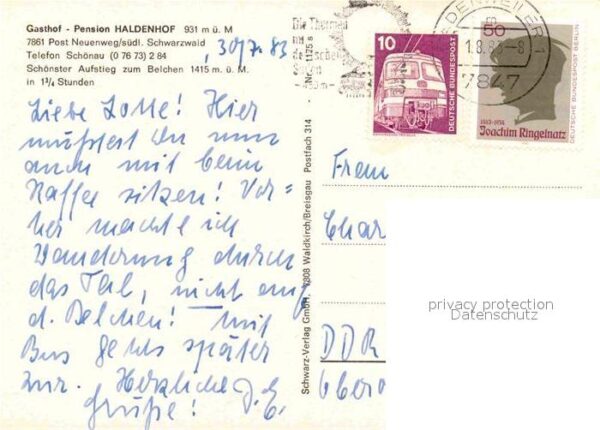 Gasthof - Pension HALDENHOF 931 m ü. M
7861 Post Neuenweg/südl. Schwarzwald
Telefon Schönau (0 76 73) 2 84
Schönster Aufstieg zum Belchen 1415 m. ü. M.
in 1¼ Stunden
30/7.83
Liebe Lotte! Hier
müßtest Du nun
auch mit beim
Kaffee sitzen! Vor-
her machte ich
Wanderung durch
das Tal, nicht auf
d. Belchen! mit
Bus gehts später
zur. Herzliche
Grüße! D. E.
Schwarz-Verlag GmbH, 7808 Waldkirch/Breisgau Postfach 314
Die Thermen
1.8.83-8
7847
10
DEUTSCHE BUNDESPOST
50
DEUTSCHE BUNDESPOST BERLIN
1883-1934
Joachim Ringelnatz
Frau
Char
DDR
privacy protection
Datenschutz